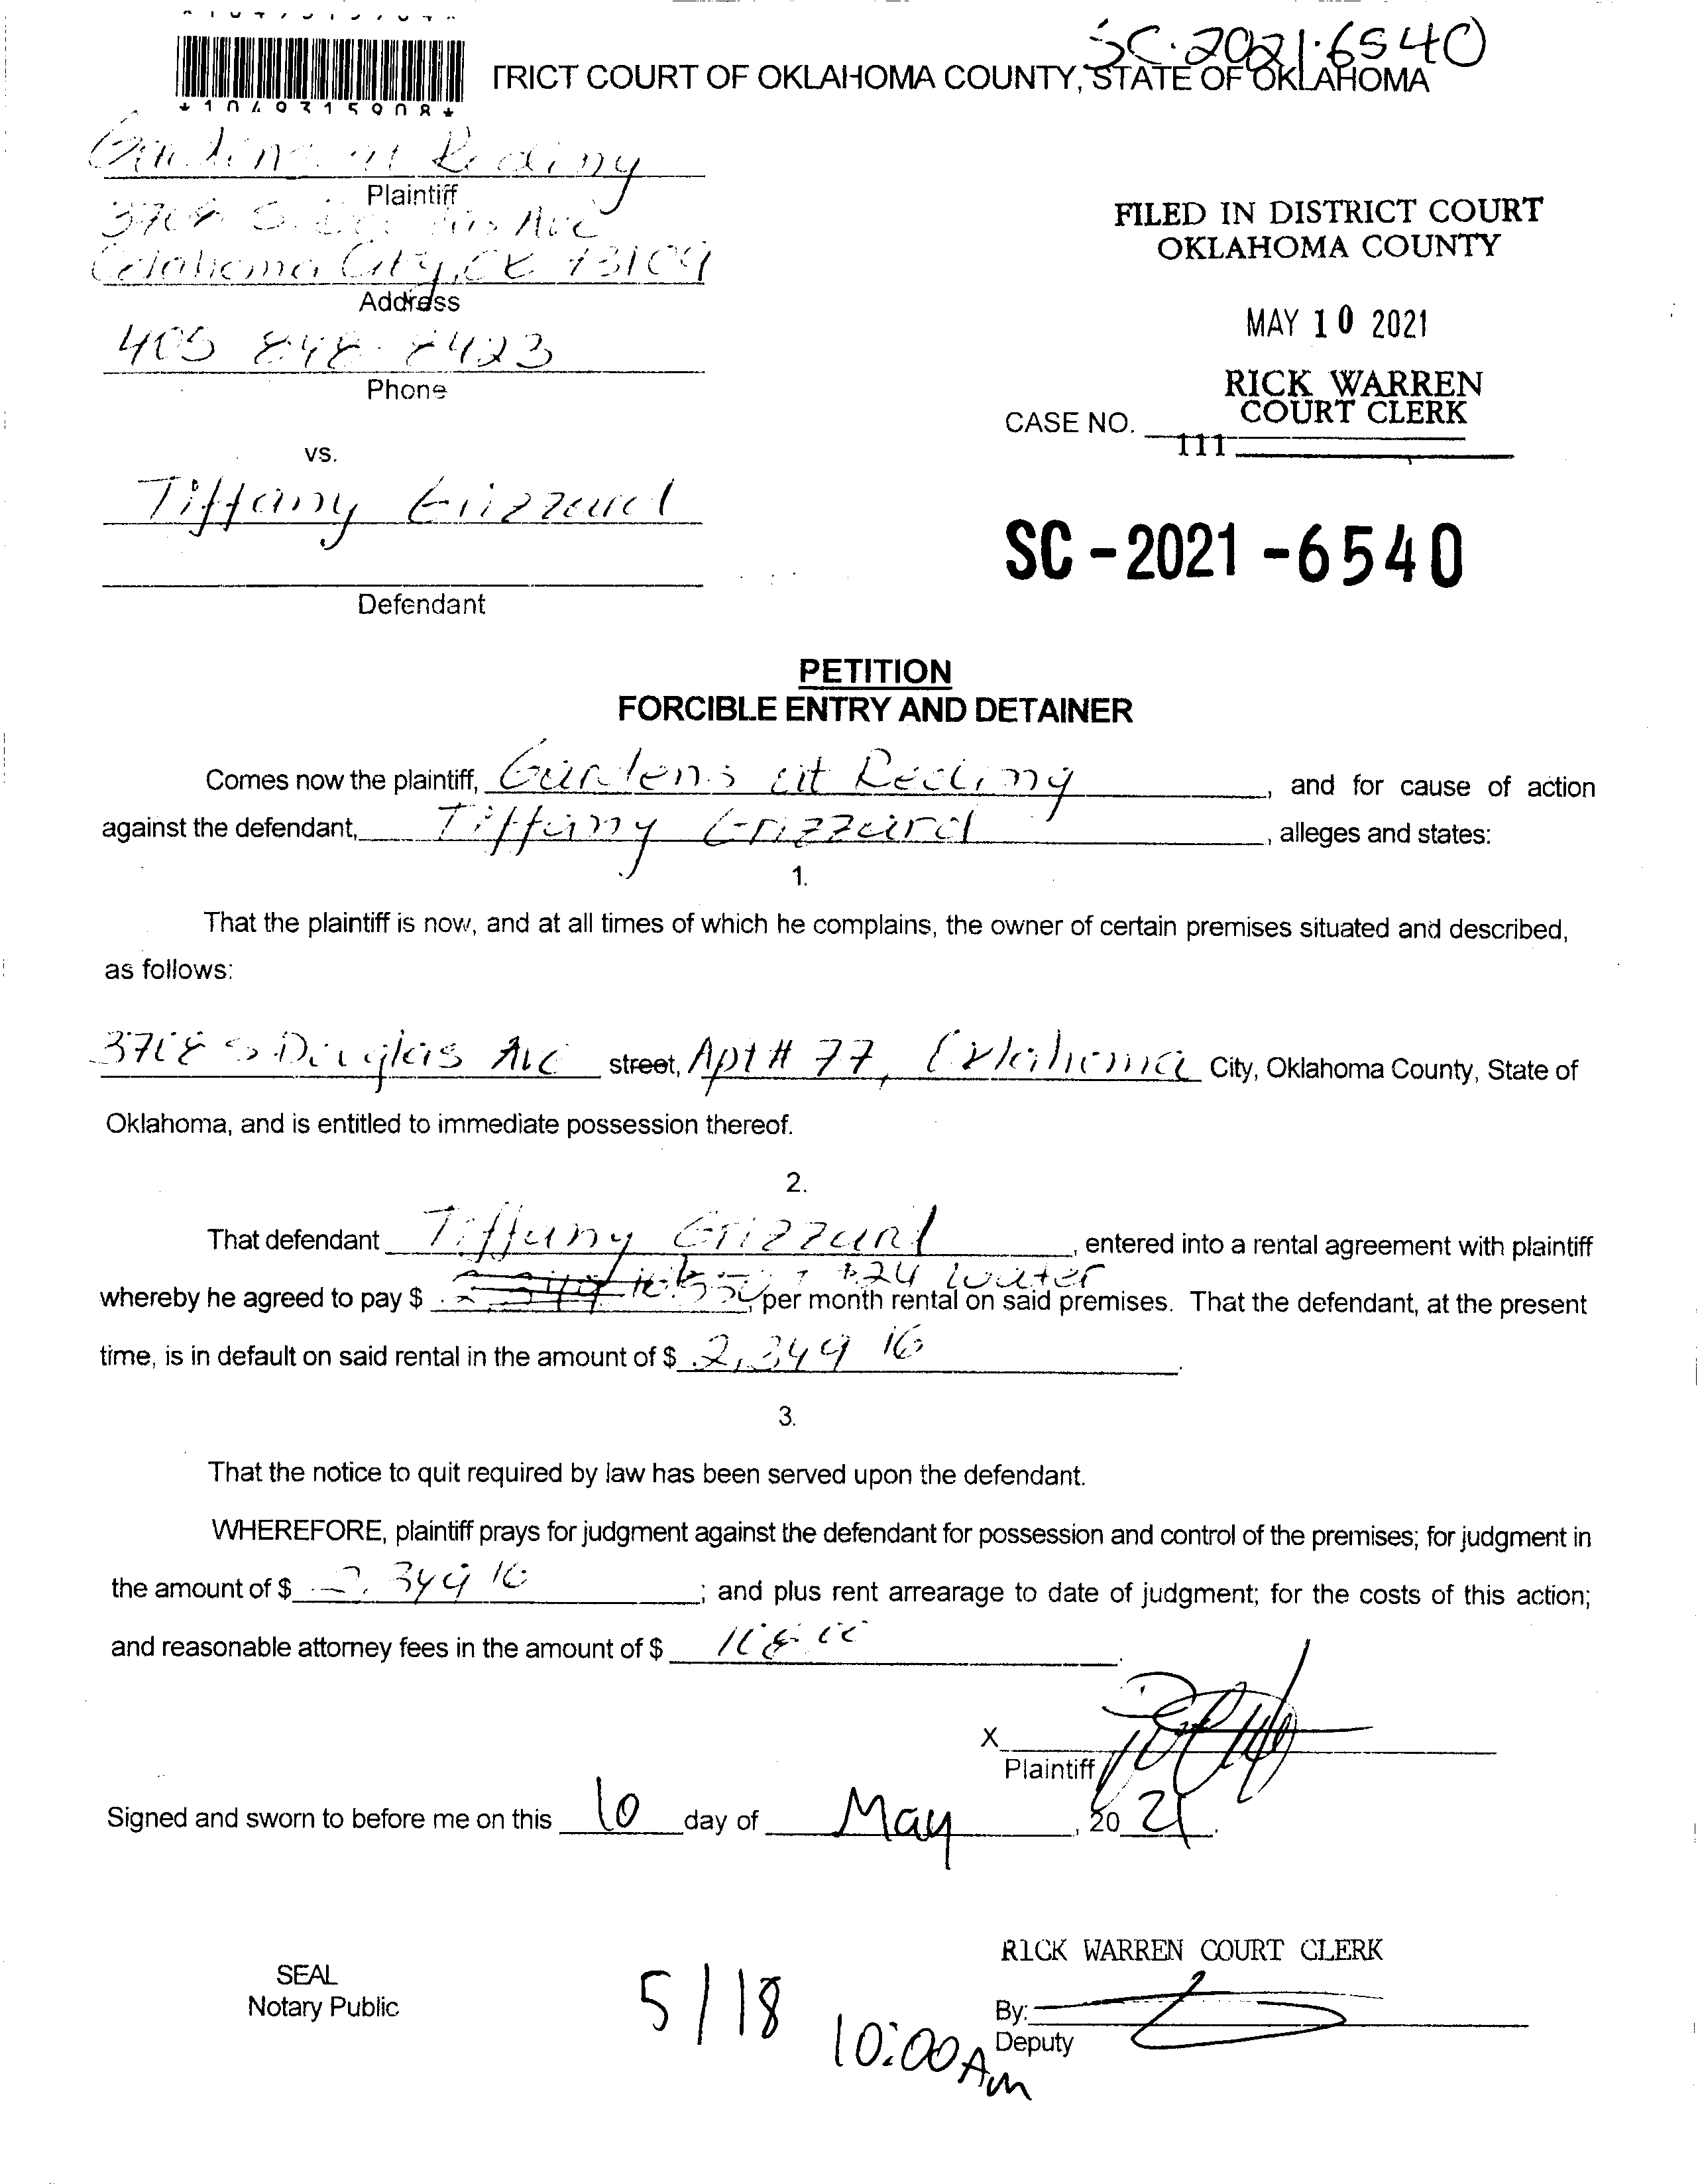 SC.2021.6540
*1049315908*
TRICT COURT OF OKLAHOMA COUNTY, STATE OF OKLAHOMA
Gardens at Reding
Plaintiff
3708 S. Douglas Ave
Oklahoma City, OK 73109
Address
405 848-8423
Phone
FILED IN DISTRICT COURT
OKLAHOMA COUNTY
MAY 10 2021
RICK WARREN
COURT CLERK
CASE NO.
111
vs.
Tiffany Grizzard
Defendant
SC-2021-6540
PETITION
FORCIBLE ENTRY AND DETAINER
Comes now the plaintiff, Gardens at Reding, and for cause of action
against the defendant, Tiffany Grizzard, alleges and states:
1.
That the plaintiff is now, and at all times of which he complains, the owner of certain premises situated and described,
as follows:
3708 S Douglas Ave street, Apt # 77, Oklahoma City, Oklahoma County, State of
Oklahoma, and is entitled to immediate possession thereof.
2.
That defendant Tiffany Grizzard, entered into a rental agreement with plaintiff
$24 water
whereby he agreed to pay $ per month rental on said premises. That the defendant, at the present
time, is in default on said rental in the amount of $ 2,349 16.
3.
That the notice to quit required by law has been served upon the defendant.
WHEREFORE, plaintiff prays for judgment against the defendant for possession and control of the premises; for judgment in
the amount of $ 2,349 16; and plus rent arrearage to date of judgment; for the costs of this action;
and reasonable attorney fees in the amount of $
X
Plaintiff
Signed and sworn to before me on this 10 day of May, 2021.
RICK WARREN COURT CLERK
SEAL
Notary Public
5/18
10:00 Am
By:
Deputy